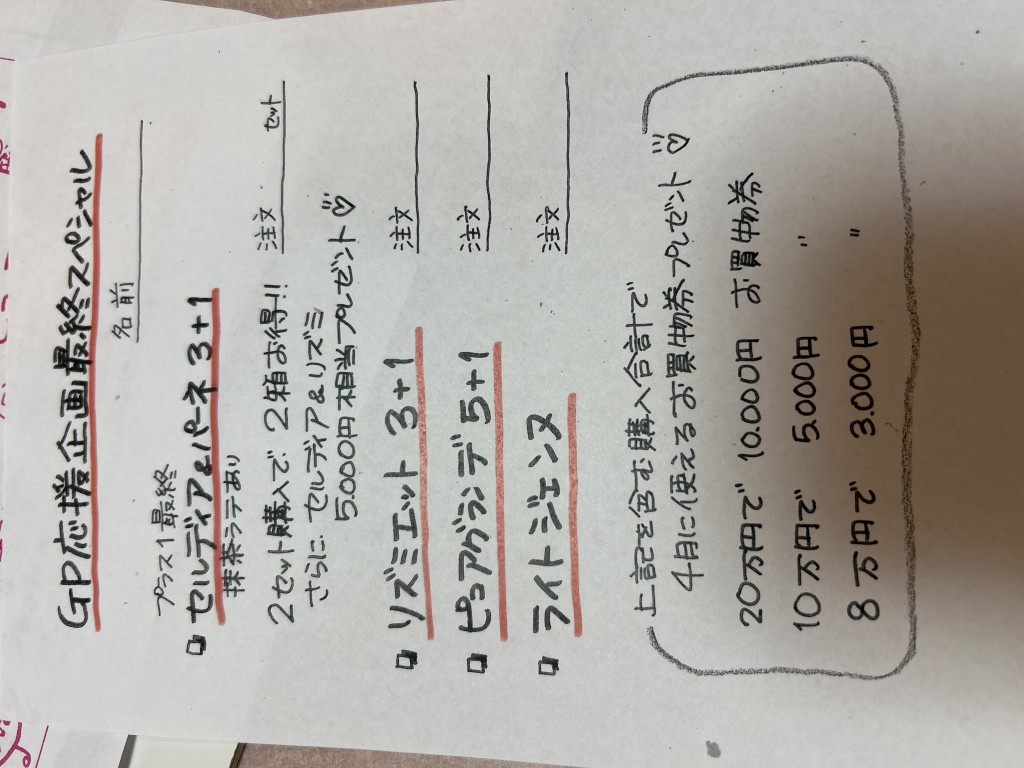 GP応援企画最終スペシャル
名前
プラス1最終
セルディア&パーネ 3+1
抹茶ラテあり
注文 セット
2セット購入で 2箱お得!!
さらに、セルディア&リズミ
5.000円相当プレゼント♡
リズミエット 3+1 注文
ピュアグランデ 5+1 注文
ライトジェンヌ 注文
上記を含む購入合計で
4月に使えるお買物券プレゼント♡
20万円で 10.000円 お買物券
10万円で 5.000円 〃
8万円で 3.000円 〃